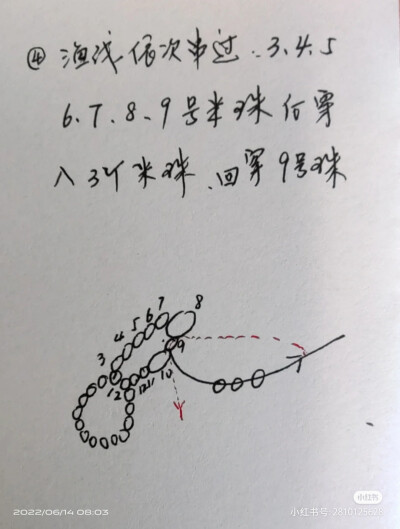 ④ 渔线依次串过:3.4.5
6.7.8.9号米珠后穿
入3个米珠.回穿9号珠
7 8
6
5
4
3 9
1 2 12 11 10
小红书
2022/06/14 08:03